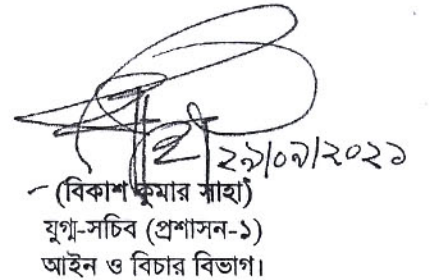 ২৯/০৯/২০২১
(বিকাশ কুমার সাহা)
যুগ্ম-সচিব (প্রশাসন-১)
আইন ও বিচার বিভাগ।